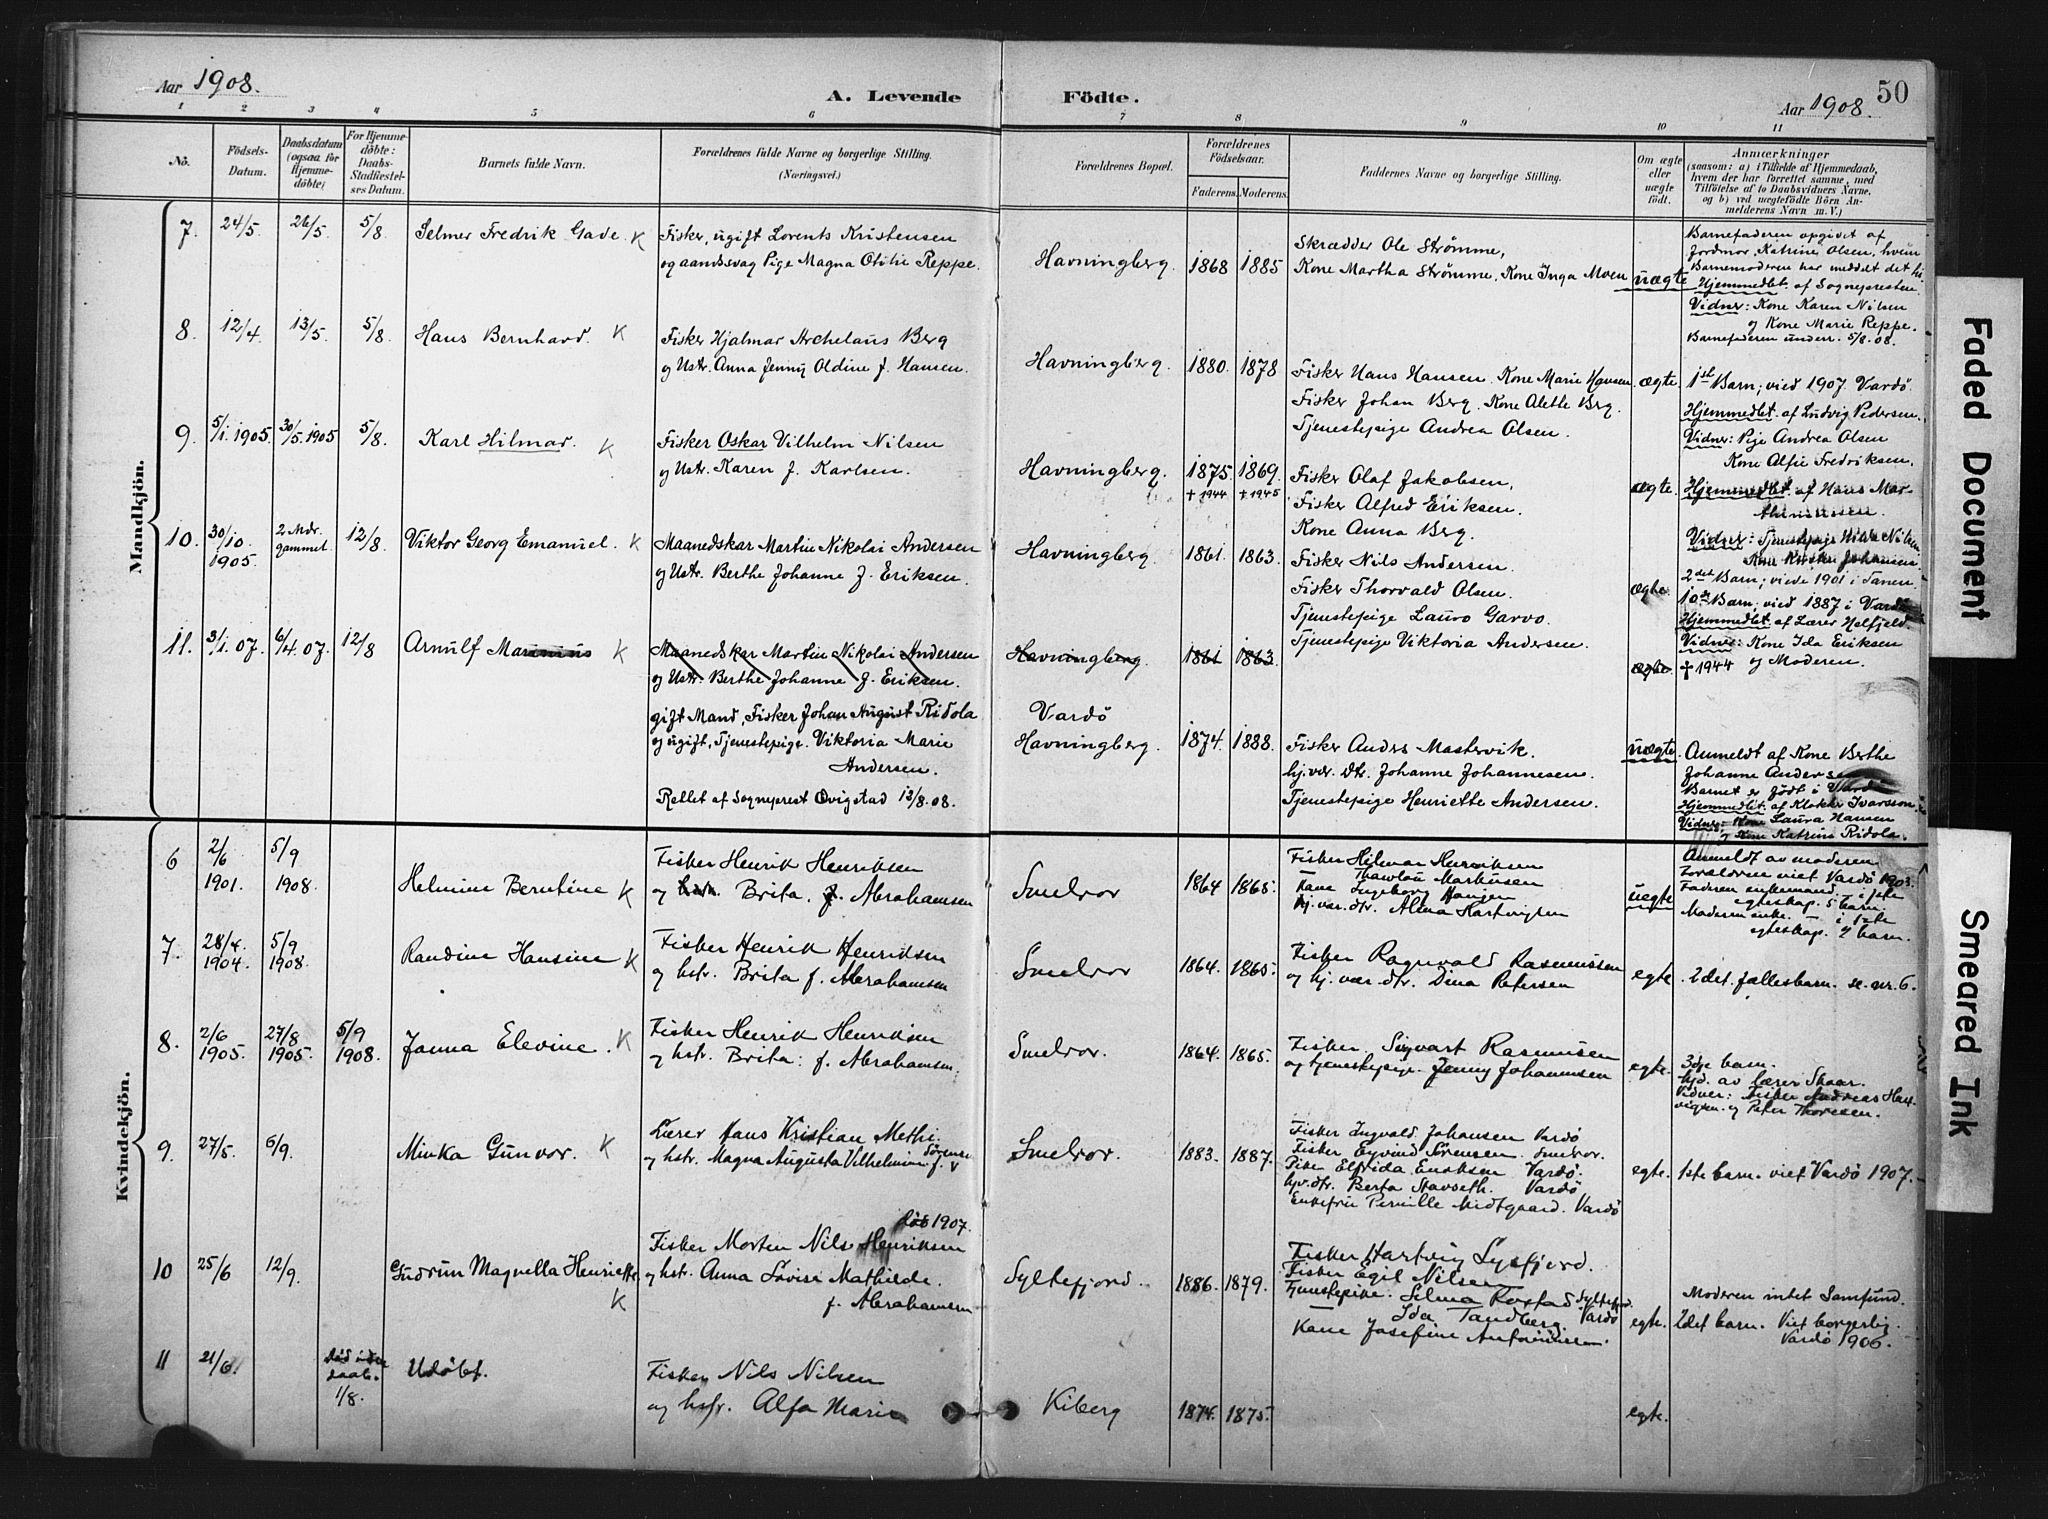 Aar 1908.
A. Levende Födte.
50
Aar 1908.
1 2 3 4 5 6 7 8 9 10 11
No.
Födsels-Datum.
Daabsdatum (ogsaa for Hjemmedöbte)
For Hjemmedöbte: Daabs-Stadfæstelses Datum.
Barnets fulde Navn.
Forældrenes fulde Navne og borgerlige Stilling.
(Næringsvei.)
Forældrenes Bopæl.
Forældrenes Födselsaar.
Faderens. Moderens.
Faddernes Navne og borgerlige Stilling.
Om ægte eller uægte födt.
Anmærkninger
(saasom: a) i Tilfælde af Hjemmedaab, hvem der har forrettet samme, med Tilföielse af to Daabsvidners Navne, og b) ved uægtefödte Börn Anmelderens Navn m. V.)
Mandkjön.
7. 24/5. 26/5. 5/8 Selmer Fredrik Gade K
Fisker, ugift Lorents Kristensen
og aandssvag Pige Magna Otilie Reppe.
Havningberg. 1868 1885
Skrædder Ole Strømme,
Kone Martha Strømme, Kone Inga Moen
uægte
Barnefaderen opgivet af
Jordmor, Katrine Olsen, hvem
Barnemoderen har meddelt det
Hjemmedbt. af Sognepresten
Vidner: Kone Karen Nilsen
og Kone Marie Reppe.
Barnefaderen underr. 5/8.08.
8. 12/4. 13/5. 5/8. Hans Bernhard. K
Fisker Hjalmar Archelaus Berg
og Ustr. Anna Jenny Oldine f. Hansen.
Havningberg. 1880. 1878
Fisker Hans Hansen. Kone Marie Hansen
Fisker Johan Berg. Kone Alette Berg.
Tjenestepige Andrea Olsen.
ægte.
1st Barn; vied 1907. Vardö.
Hjemmedbt. af Ludvig Pedersen.
Vidner: Pige Andrea Olsen
Kone Alfie Fredriksen.
9. 5/1.1905. 30/5.1905 5/8. Karl Hilmar. K
Fisker Oskar Vilhelm Nilsen
og Ustr. Karen f. Karlsen.
Havningberg. 1875. 1869
† 1944 † 1945
Fisker Olaf Jakobsen,
Fisker Alfred Eriksen.
Kone Anna Berg.
ægte.
Hjemmedbt. af Hans Mar-
Vidner: Tjenestepige Nilsen
Johansen
2det Barn; viede 1901 i Tanen.
10. 30/10. 1905. 2 Mdr. gammel. 12/8. Viktor Georg Emanuel. K
Maanedskar Martin Nikolai Andersen
og Ustr. Berthe Johanne f. Eriksen.
Havningberg. 1861. 1863.
Fisker Nils Andersen.
Fisker Thorvald Olsen.
Tjenestepige Laura Garvo.
Tjenestepige Viktoria Andersen.
ægte.
10de Barn; vied 1887 i Vardö
Hjemmedbt. af Lærer Helfjeld.
Vidner: Kone Ida Eriksen
og Moderen.
11. 3/1.07. 6/4.07. 12/8 Arnulf Marinius K
Maanedskar Martin Nikolai Andersen
og Ustr. Berthe Johanne f. Eriksen.
Havningberg. 1861 1863
ægte. † 1944
gift Mand, Fisker Johan August Ridola
og ugift, Tjenestepige. Viktoria Marie
Andersen.
Rettet af Sogneprest Qvigstad 12/8.08.
Vardö
Havningberg. 1874. 1888.
Fisker Anders Mastervik.
hj.vær. dtr. Johanne Johannesen.
Tjenestepige Henriette Andersen.
uægte.
Anmeldt af Kone Berthe
Johanne Andersen
Barnet er födt i Vard
Hjemmedbt. af Klokker Ivarsson.
Vidner: Kone Laura Hansen
og Kone Katrine Ridola.
Kvindekjön.
6 2/6 1901. 5/9 1908. Helmine Berntine K
Fisker Henrik Henriksen
og Brita. f. Abrahamsen
Smelror 1864 1865.
Fisker Hilmar Henriksen
Markusen
Kane Ingeborg
hj.vær.dtr. Alma Hartvigsen
uegte
Anmeldt av moderen
Forældrene viet Vardö 1903.
Faderen enkemand i 1ste
egteskap. 5 barn.
Moderen enke. — i 1ste
egteskap. 4 barn.
7. 28/4. 1904. 5/9 1908. Randine Hansine K
Fisker Henrik Henriksen
og hstr. Brita f. Abrahamsen
Smelror 1864. 1865.
Fisker Ragnvald Rasmussen
og hj. vær. dtr. Dina Petersen
egte. 2det. fællesbarn. se. nr. 6.
8. 2/6 1905. 27/8 1905. 5/9 1908. Janna Elevine. K
Fisker Henrik Henriksen
og hstr. Brita: f. Abrahamsen.
Smelror. 1864. 1865.
Fisker. Sigvart Rasmussen
og tjenestepige. Jenny Johannesen
egte.
3dje barn.
hjd. av lærer Skaar.
Vidner: Fisker Andreas Hart-
vigsen. og Peter Thoresen.
9. 27/5. 6/9. Minka Gunvor. K
Lærer Hans Kristian Methi.
og hstr. Magna Augusta Vilhelmine f. Sørensen
Smelror. 1883. 1887.
Fisker Ingvald Johansen Vardö
Fisker Eyvind Sörensen. Smelror.
Pike Elfrida Enoksen Vardö.
hjv. dtr. Berta Stavseth. Vardö
Enkefru Pernille Midtgaard. Vardö
egte. 1ste barn. viet Vardö 1907.
10 25/6 12/9. Gudrun Magnella Henriette K
död 1907.
Fisker Morten Nils Henriksen
og hstr. Anna Lovise Mathilde.
f. Abrahamsen
Syltefjord. 1886. 1879.
Fisker Hartvig Syvfjord.
Fisker Egil Nilsen
Tjenestepike. Selma Rostad Syltefjord.
Ida Tandberg. Vardö
Kane Josefine Antonissen.
egte.
Moderen intet Samfund.
2det barn. Viet borgerlig
Vardö 1906.
11 21/6. död uden daab. 1/8. Udöbt.
Fisker Nils Nilsen
og hstr. Alfa Marie
Kiberg 1874. 1875.
egte.
Faded Document
Smeared Ink